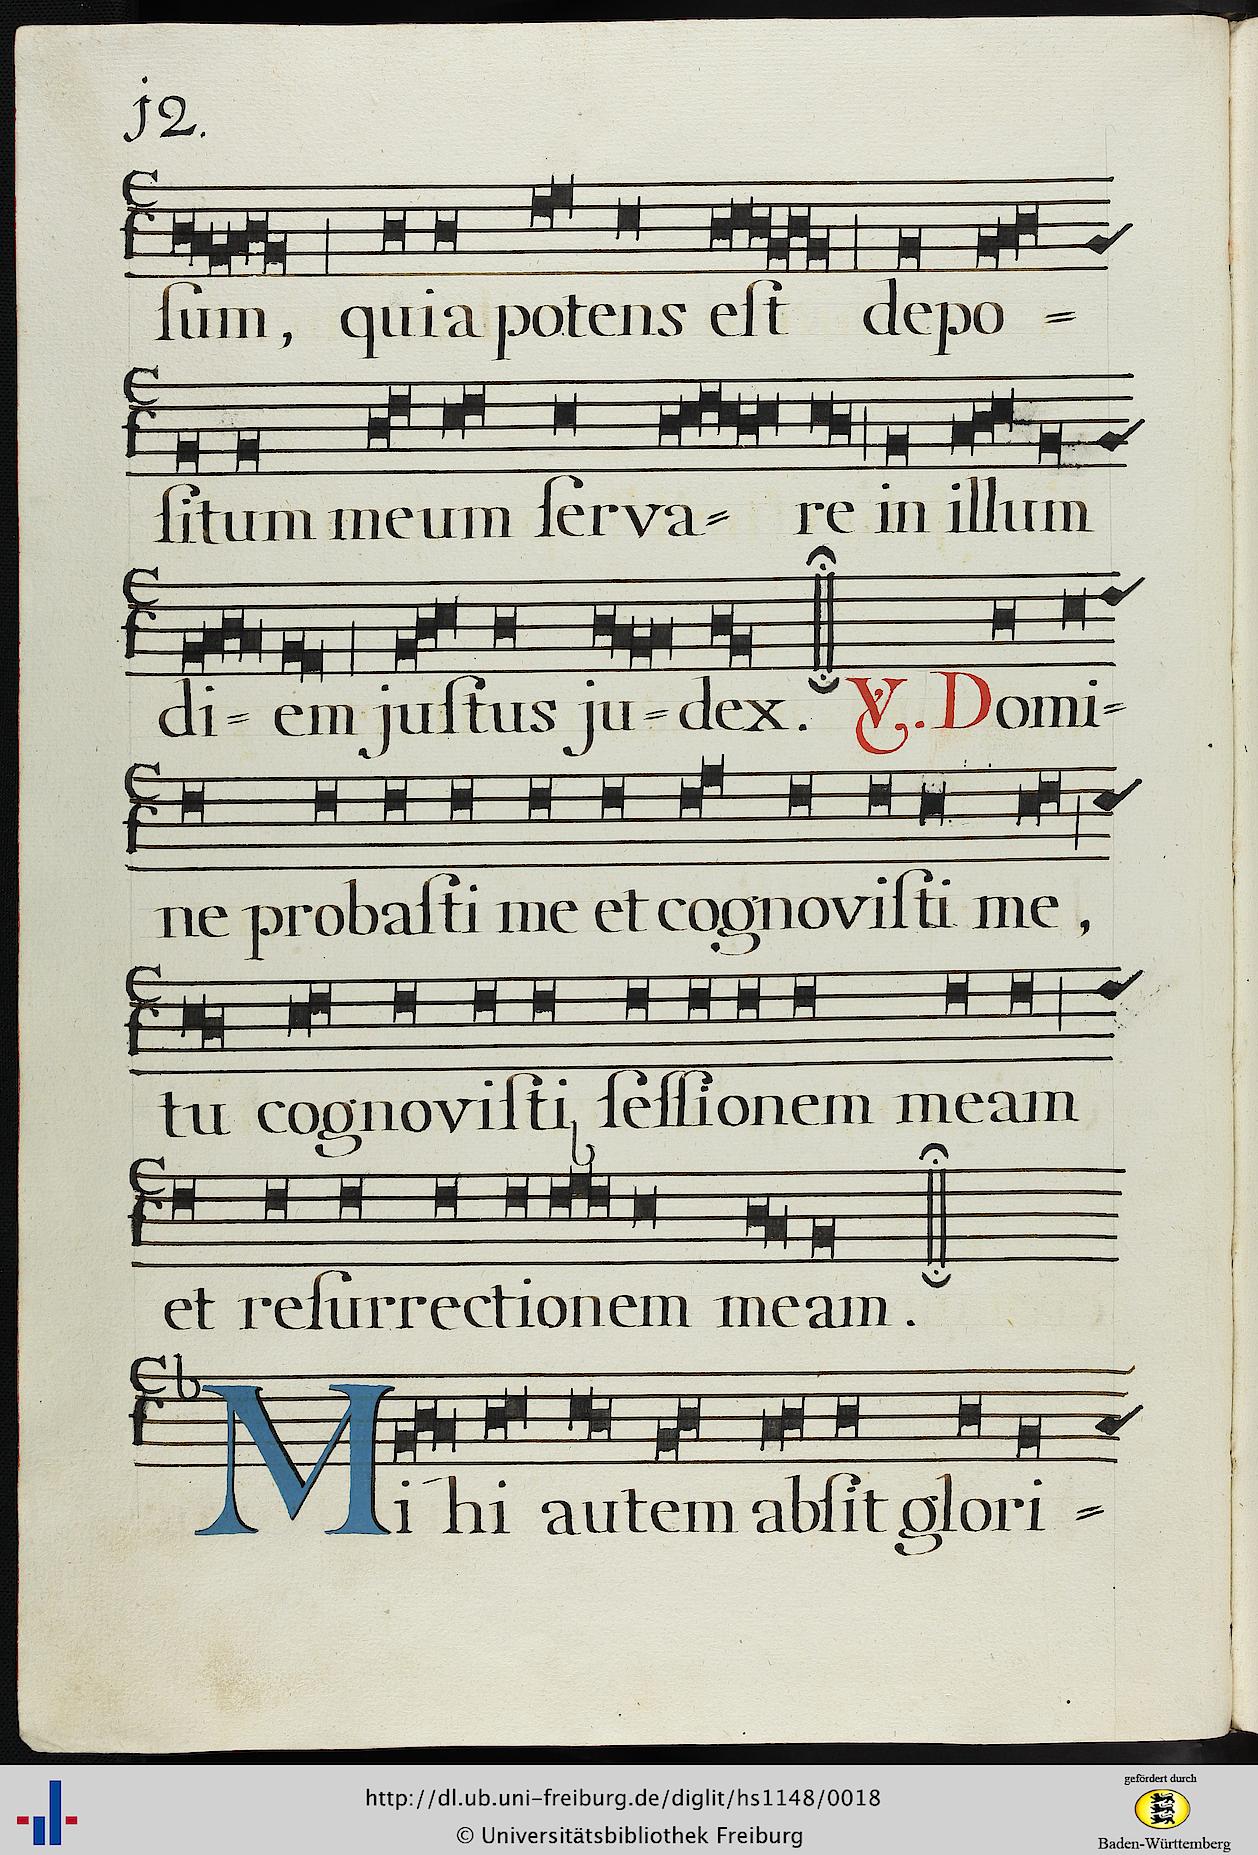 j2.
ſum, quia potens eſt depo =
ſitum meum ſerva= re in illum
di= em juſtus ju=dex. V. Domi=
ne probaſti me et cognoviſti me,
tu cognoviſti ſeſſionem meam
et reſurrectionem meam.
Mi hi autem abſit glori =
http://dl.ub.uni-freiburg.de/diglit/hs1148/0018
© Universitätsbibliothek Freiburg
gefördert durch
Baden-Württemberg